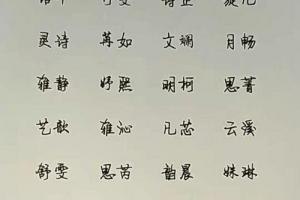 灵诗 苒如 文斓 月畅
雅静 妤熙 明柯 思菁
艺歆 雅沁 凡芯 云溪
舒雯 思芮 韵晨 姝琳